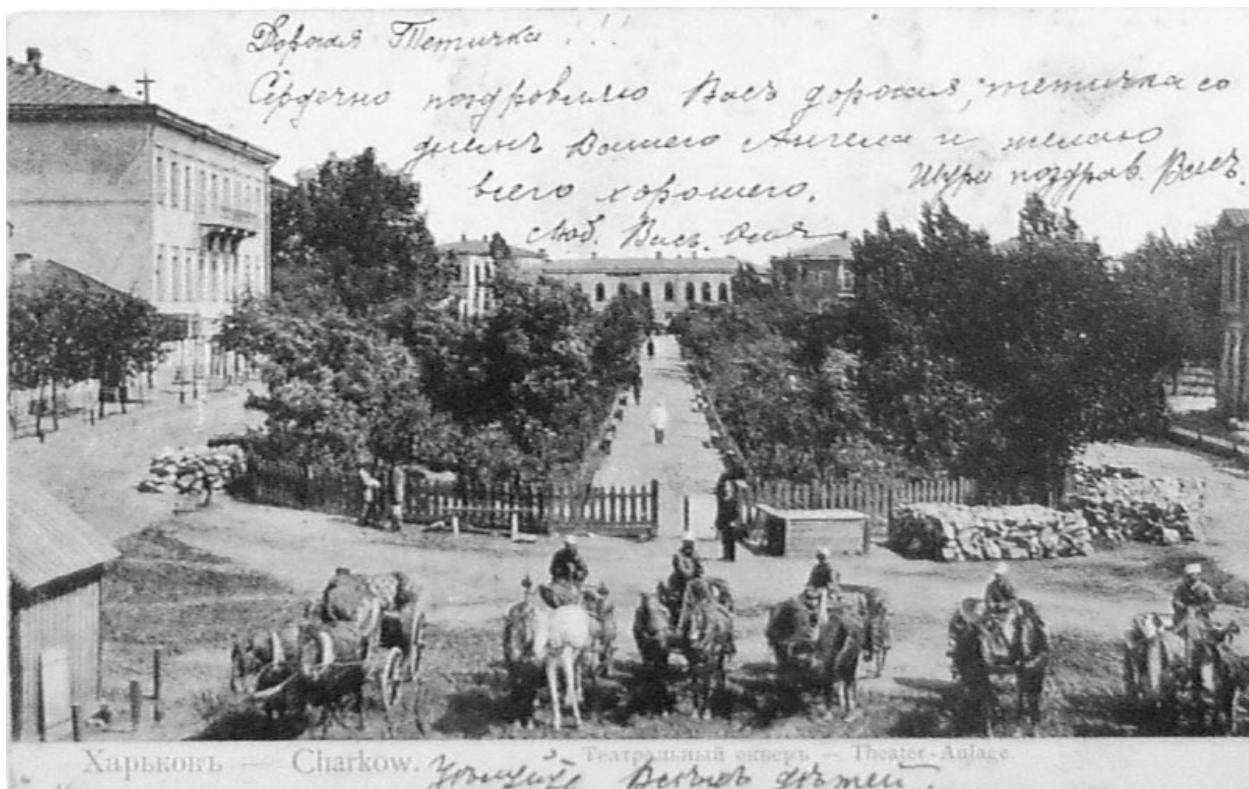 Дорогая Тетичка!!!
Сердечно поздровляю Васъ дорогая, тетичка со
днемъ Вашего Ангела и желаю
всего хорошего.
Шура поздрав. Васъ.
Люб. Васъ. Оля
Харьковъ — Charkow.
Театральный скверъ — Theater-Anlage.
Цѣлуйте Всѣхъ дѣтей.